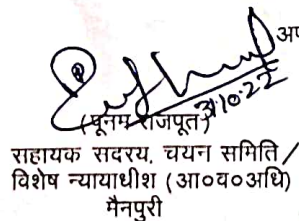 अप
31.10.22
(पूनम राजपूत)
सहायक सदस्य, चयन समिति /
विशेष न्यायाधीश (आ०व०अधि)
मैनपुरी